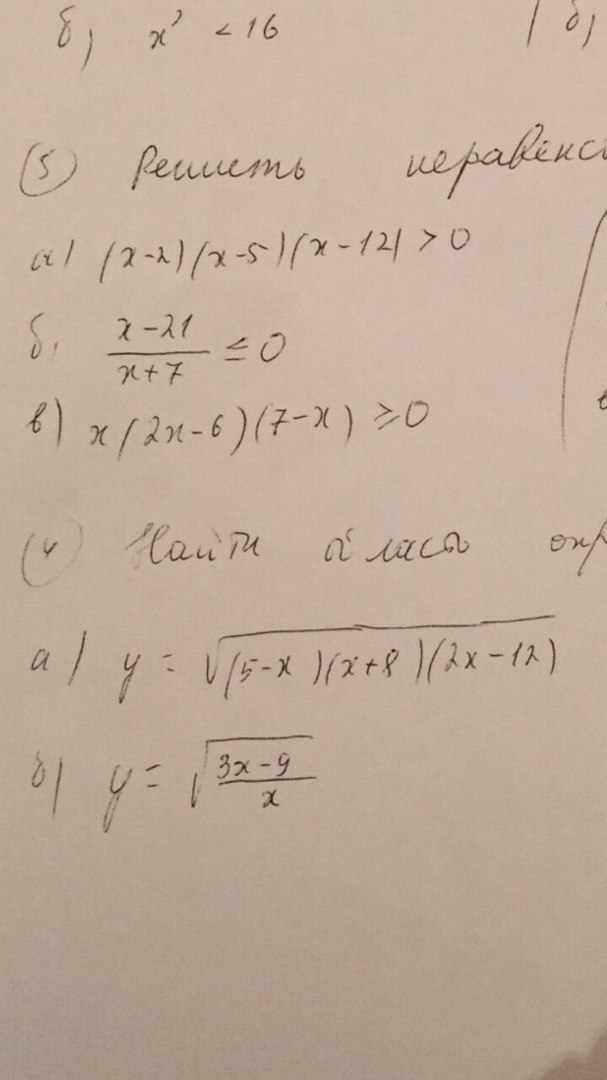 б) x² < 16 | б)
(5) Решить неравенс
а) (x-2)(x-5)(x-12) > 0
б) (x-21)/(x+7) ≤ 0
в) x(2x-6)(7-x) ≥ 0
(4) Найти область опр
а) y = √((5-x)(x+8)(2x-12))
б) y = √((3x-9)/x)